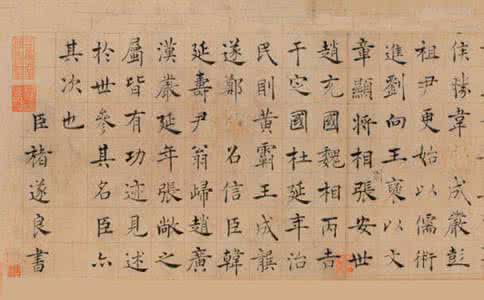 侯勝韋 成嚴彭
祖尹更始以儒術
進劉向王襃以文
章顯將相張安世
趙充國魏相丙吉
于定國杜延年治
民則黃霸王成龔
遂鄭 召信臣韓
延壽尹翁歸趙廣
漢嚴延年張敞之
屬皆有功迹見述
於世參其名臣亦
其次也
臣褚遂良書